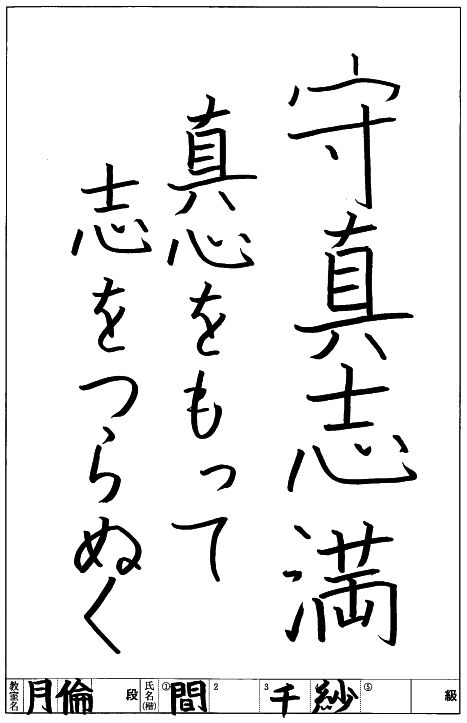 守真志満
真心をもって
志をつらぬく
教室名 月倫 段 氏名(楷) ① 間 2 3 千 紗 ⑤ 級